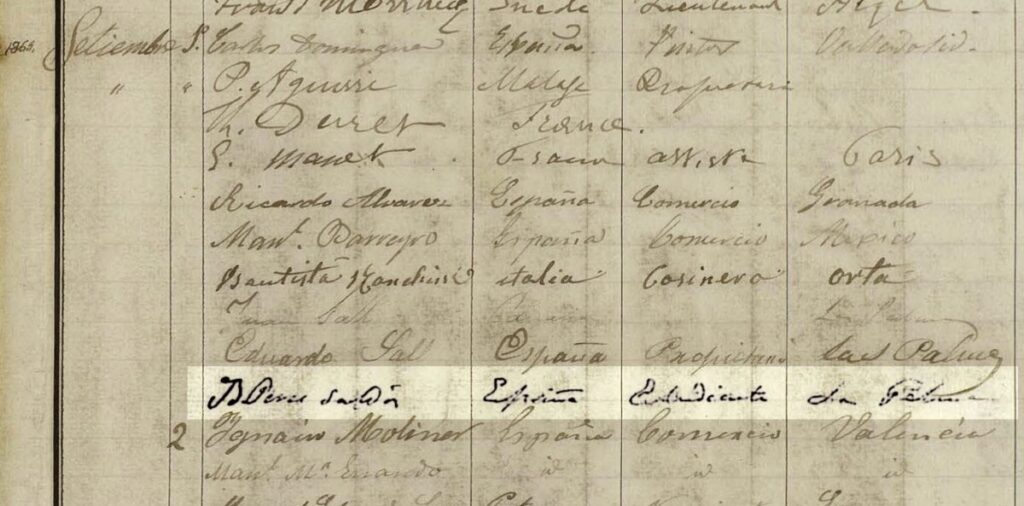 Suede Lieutenant Alger
1865. Setiembre 1º Carlos Dominguez España Pintor Valladolid.
" " P. Aguirre Malaga Propietario
Th. Duret France.
E. Manet France artiste Paris
Ricardo Alvarez España Comercio Granada
Manl. Barreyro España Comercio Mexico
Bautista italia Cosinero orta
Juan Sall España La Palma
Eduardo Sall España Propietario Las Palmas
B Perez Galdós España Estudiante La Palma
2 Ygnacio Moliner España Comercio Valencia
Manl. Ma. id id id